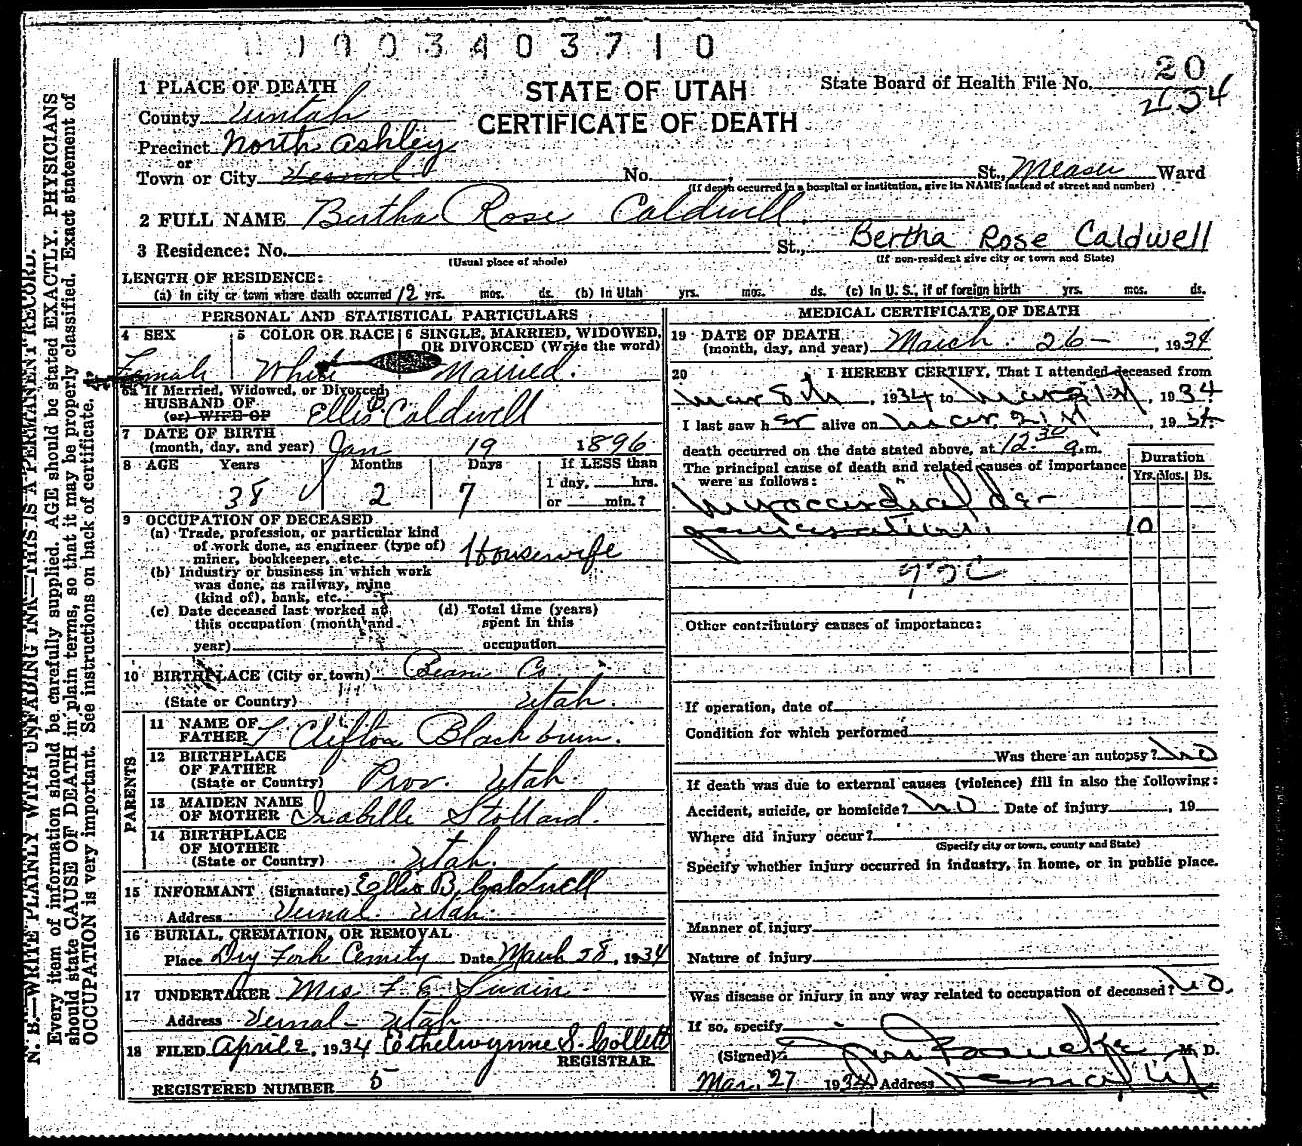 0003403710
20
434
1 PLACE OF DEATH
STATE OF UTAH
State Board of Health File No.
County Uintah
CERTIFICATE OF DEATH
Precinct North Ashley
or
Town or City Vernal No. St., Ward
(If death occurred in a hospital or institution, give its NAME instead of street and number)
2 FULL NAME Bertha Rose Caldwell
3 Residence: No. St., Bertha Rose Caldwell
(Usual place of abode) (If non-resident give city or town and State)
LENGTH OF RESIDENCE:
(a) In city or town where death occurred 12 yrs. mos. ds. (b) In Utah yrs. mos. ds. (c) In U. S., if of foreign birth yrs. mos. ds.
PERSONAL AND STATISTICAL PARTICULARS
4 SEX
Female
5 COLOR OR RACE
White
6 SINGLE, MARRIED, WIDOWED,
OR DIVORCED (Write the word)
Married.
6a If Married, Widowed, or Divorced,
HUSBAND OF
(or) WIFE OF Ellis Caldwell
7 DATE OF BIRTH
(month, day, and year) Jan 19 1896
8 AGE Years Months Days If LESS than
38 2 7 1 day, hrs.
or min.?
9 OCCUPATION OF DECEASED
(a) Trade, profession, or particular kind
of work done, as engineer (type of)
miner, bookkeeper, etc. Housewife
(b) Industry or business in which work
was done, as railway, mine
(kind of), bank, etc.
(c) Date deceased last worked at (d) Total time (years)
this occupation (month and spent in this
year) occupation
10 BIRTHPLACE (City or town) Co.
(State or Country) Utah
PARENTS
11 NAME OF
FATHER Clifton Blackburn.
12 BIRTHPLACE
OF FATHER
(State or Country) Prov. Utah.
13 MAIDEN NAME
OF MOTHER Isabille
14 BIRTHPLACE
OF MOTHER
(State or Country) Utah.
15 INFORMANT (Signature) Ellis B. Caldwell
Address Vernal Utah.
16 BURIAL, CREMATION, OR REMOVAL
Place Dry Fork Date March 28, 1934
17 UNDERTAKER Mrs F E Swain
Address Vernal - Utah
18 FILED April 2, 1934 Ethelwynne S. Collett
REGISTRAR.
REGISTERED NUMBER 5
MEDICAL CERTIFICATE OF DEATH
19 DATE OF DEATH
(month, day, and year) March 26 - , 1934
20 I HEREBY CERTIFY, That I attended deceased from
Mar 8th, 1934 to Mar 21st, 1934
I last saw her alive on Mar. 21st, 1934
death occurred on the date stated above, at 12:30 a.m.
The principal cause of death and related causes of importance
were as follows:
Duration
Yrs. Mos. Ds.
Myocardial de-
generation. 10
93C
Other contributory causes of importance:
If operation, date of
Condition for which performed
Was there an autopsy? no
If death was due to external causes (violence) fill in also the following:
Accident, suicide, or homicide? no Date of injury , 19
Where did injury occur?
(Specify city or town, county and State)
Specify whether injury occurred in industry, in home, or in public place.
Manner of injury
Nature of injury
Was disease or injury in any way related to occupation of deceased? no.
If so, specify
(Signed) M. D.
Mar. 27 1934 Address Vernal, Ut
N. B.—WRITE PLAINLY WITH UNFADING INK—THIS IS A PERMANENT RECORD.
Every item of information should be carefully supplied. AGE should be stated EXACTLY. PHYSICIANS
should state CAUSE OF DEATH in plain terms, so that it may be properly classified. Exact statement of
OCCUPATION is very important. See instructions on back of certificate.